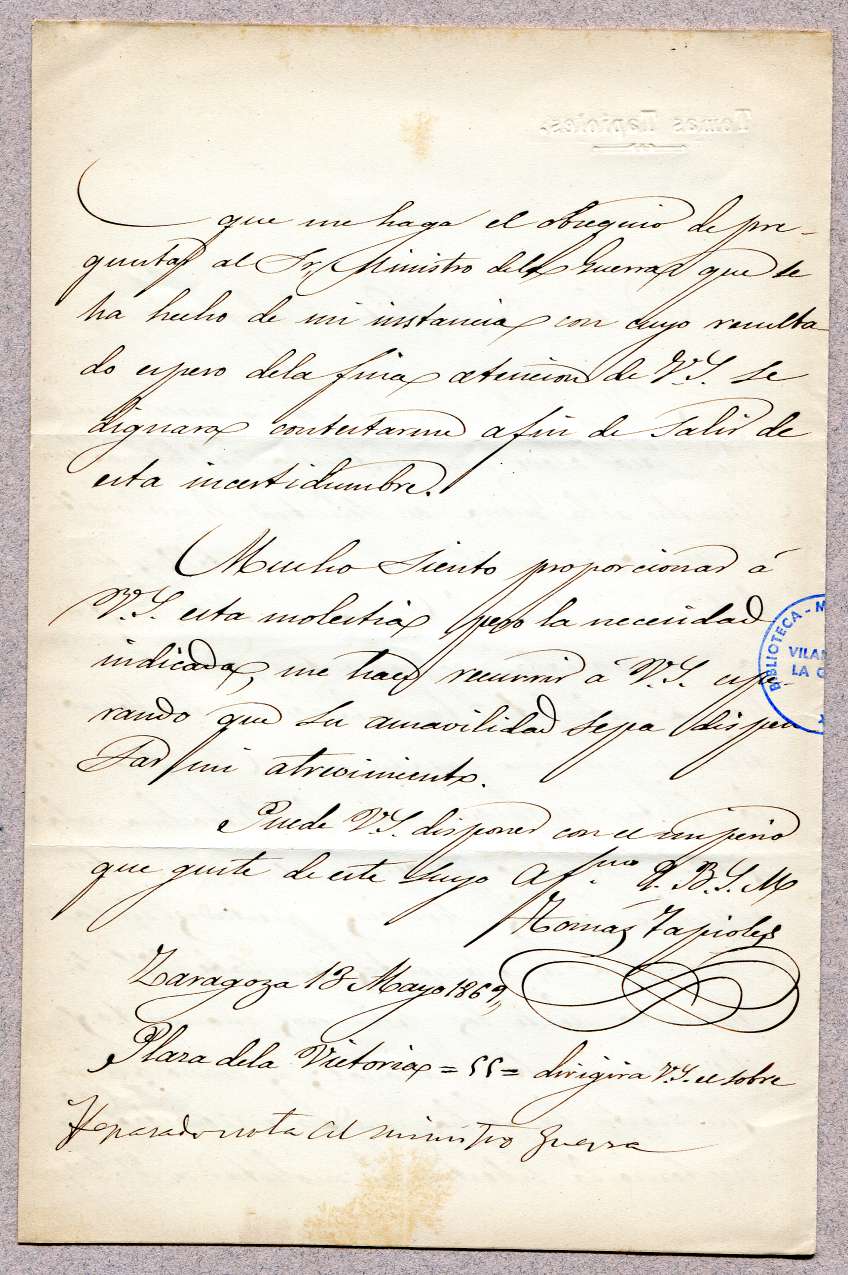 Tomás Tapioles.
que me haga el obsequio de pre-
guntar al Sr. Ministro dela Guerra que se
ha hecho de mi instancia con cuyo resulta-
do espero dela fina atencion de V.S. se
dignara contestarme afin de salir de
esta incertidumbre.
Mucho siento proporcionar á
V.S. esta molestia pero la necesidad
indicada, me hace recurrir á V.S. espe-
rando que su amavilidad sepa dispen
sar mi atrevimiento.
Puede V.S. disponer con el imperio
que guste de este suyo Af.mo Q. B. S. M
Tomás Tapioles
Zaragoza 13 Mayo 1869,,
Plaza dela Victoria = 55 = dirigira V.S. el sobre
He pasado nota al ministro Guerra
BIBLIOTECA - M
VILAN
LA G